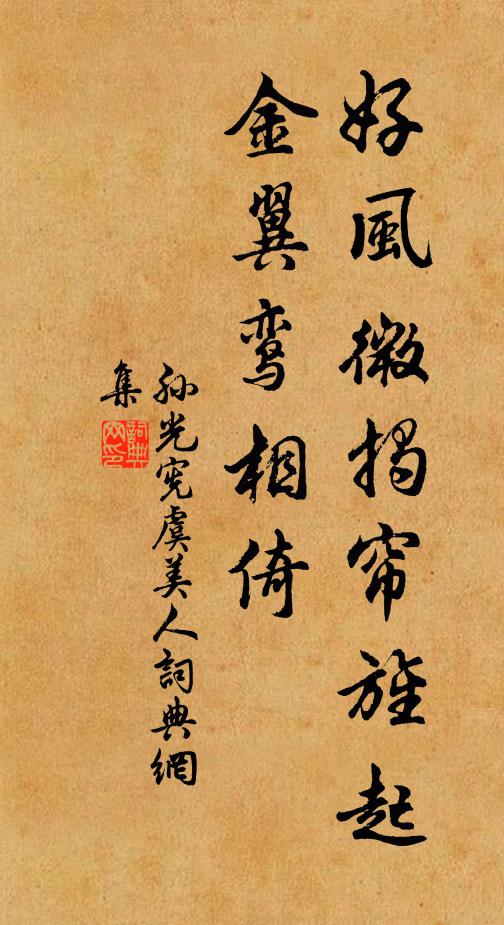 好風微揭帘旌起
金翼鸾相倚
孙光宪虞美人詞典網
集
詞典网印